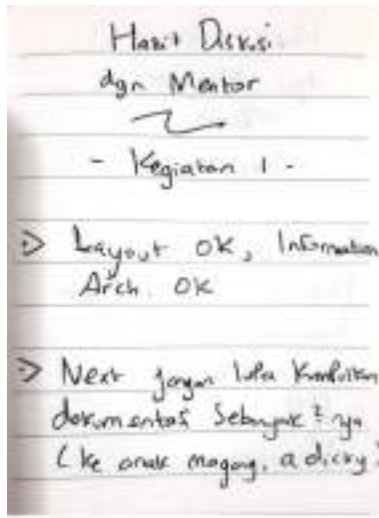 Hasil Diskusi
dgn Mentor
- Kegiatan 1 -
→ Layout OK, Information
Arch. OK
→ Next jangan lupa kumpulkan
dokumentasi sebanyak²nya
(ke anak magang, a dicky)